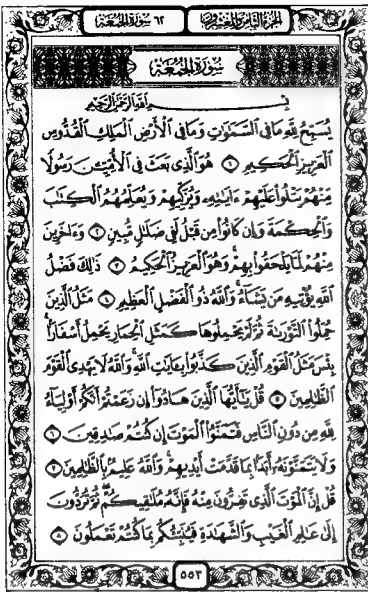 الجزء الثامن والعشرون ٦٢ سورة الجمعة
سُورَةُ الجُمُعَةِ
بِسْمِ اللَّهِ الرَّحْمَٰنِ الرَّحِيمِ
يُسَبِّحُ لِلَّهِ مَا فِي السَّمَٰوَٰتِ وَمَا فِي الْأَرْضِ الْمَلِكِ الْقُدُّوسِ
الْعَزِيزِ الْحَكِيمِ ١ هُوَ الَّذِي بَعَثَ فِي الْأُمِّيِّينَ رَسُولًا
مِنْهُمْ يَتْلُوا عَلَيْهِمْ ءَايَٰتِهِ وَيُزَكِّيهِمْ وَيُعَلِّمُهُمُ الْكِتَٰبَ
وَالْحِكْمَةَ وَإِن كَانُوا مِن قَبْلُ لَفِي ضَلَٰلٍ مُّبِينٍ ٢ وَءَاخَرِينَ
مِنْهُمْ لَمَّا يَلْحَقُوا بِهِمْ وَهُوَ الْعَزِيزُ الْحَكِيمُ ٣ ذَٰلِكَ فَضْلُ
اللَّهِ يُؤْتِيهِ مَن يَشَاءُ وَاللَّهُ ذُو الْفَضْلِ الْعَظِيمِ ٤ مَثَلُ الَّذِينَ
حُمِّلُوا التَّوْرَىٰةَ ثُمَّ لَمْ يَحْمِلُوهَا كَمَثَلِ الْحِمَارِ يَحْمِلُ أَسْفَارًا
بِئْسَ مَثَلُ الْقَوْمِ الَّذِينَ كَذَّبُوا بِـَٔايَٰتِ اللَّهِ وَاللَّهُ لَا يَهْدِي الْقَوْمَ
الظَّٰلِمِينَ ٥ قُلْ يَٰأَيُّهَا الَّذِينَ هَادُوا إِن زَعَمْتُمْ أَنَّكُمْ أَوْلِيَاءُ
لِلَّهِ مِن دُونِ النَّاسِ فَتَمَنَّوُا الْمَوْتَ إِن كُنتُمْ صَٰدِقِينَ ٦
وَلَا يَتَمَنَّوْنَهُ أَبَدًا بِمَا قَدَّمَتْ أَيْدِيهِمْ وَاللَّهُ عَلِيمٌ بِالظَّٰلِمِينَ ٧
قُلْ إِنَّ الْمَوْتَ الَّذِي تَفِرُّونَ مِنْهُ فَإِنَّهُ مُلَٰقِيكُمْ ثُمَّ تُرَدُّونَ
إِلَىٰ عَٰلِمِ الْغَيْبِ وَالشَّهَٰدَةِ فَيُنَبِّئُكُم بِمَا كُنتُمْ تَعْمَلُونَ ٨
٥٥٣